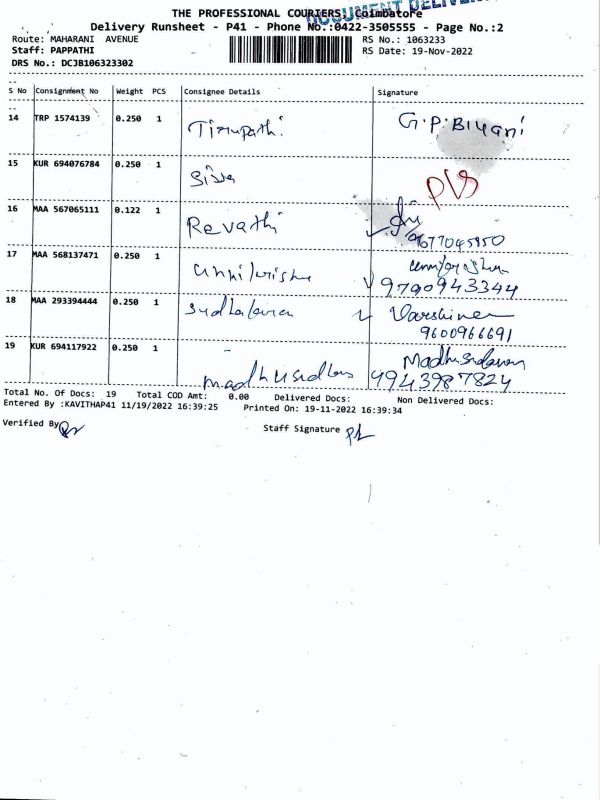 DOCUMENT DELIVER
THE PROFESSIONAL COURIERS, Coimbatore
Delivery Runsheet - P41 - Phone No.:0422-3505555 - Page No.:2
Route: MAHARANI AVENUE RS No.: 1063233
Staff: PAPPATHI RS Date: 19-Nov-2022
DRS No.: DCJB106323302
S No Consignment No Weight PCS Consignee Details Signature
14 TRP 1574139 0.250 1 Tirupathi G.P.Biyani
15 KUR 694076784 0.250 1 Siva
16 MAA 567065111 0.122 1 Revathi
9677045950
17 MAA 568137471 0.250 1
9790943344
18 MAA 293394444 0.250 1 Varshinee
9600966691
19 KUR 694117922 0.250 1 Madhusudanan
9943987824
Total No. Of Docs: 19 Total COD Amt: 0.00 Delivered Docs: Non Delivered Docs:
Entered By :KAVITHAP41 11/19/2022 16:39:25 Printed On: 19-11-2022 16:39:34
Verified By Staff Signature